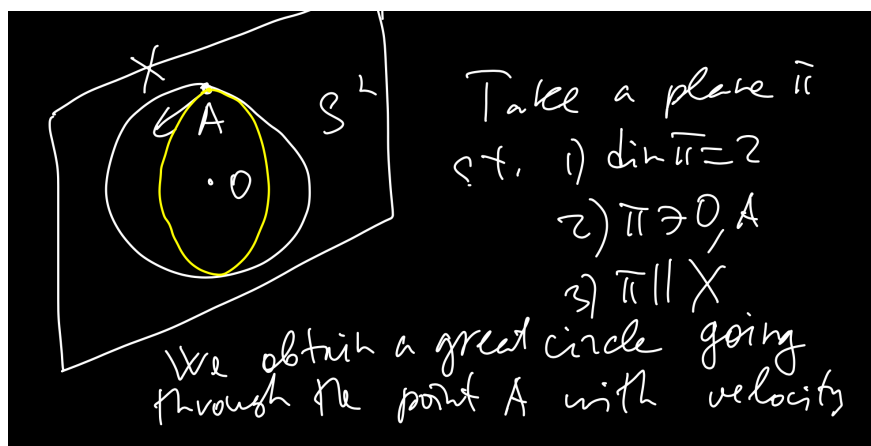 X
A
S²
O
Take a plane π
st. 1) dim π = 2
2) π ∋ O, A
3) π || X
We obtain a great circle going
through the point A with velocity